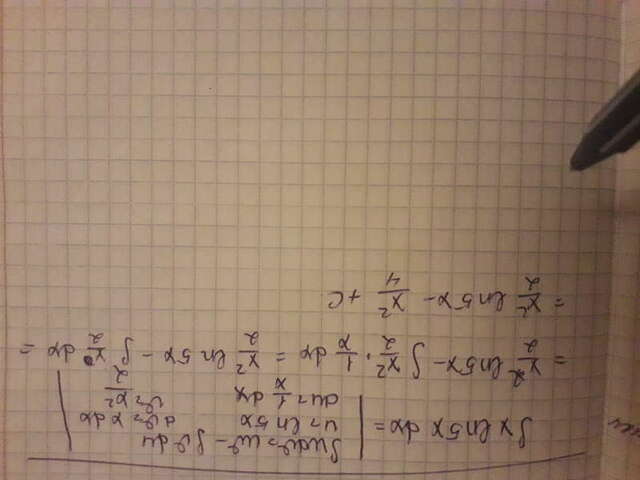 ∫x ln5x dx = | ∫udv = uv - ∫v du
u = ln5x dv = x dx
du = 1/x dx v = x²/2 |
= x²/2 ln5x - ∫ x²/2 · 1/x dx = x²/2 ln5x - ∫ x/2 dx =
= x²/2 ln5x - x²/4 + C